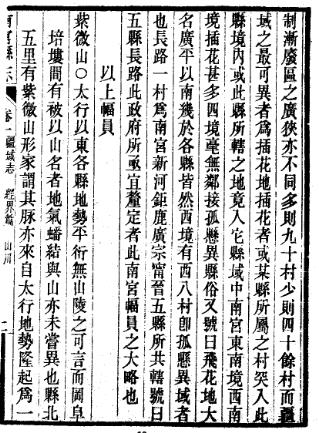 制漸廢區之廣狹亦不同多則九十村少則四十餘村而疆
域之最可異者爲插花地插花地者或某縣所屬之村突入此
縣境內或此縣所轄之地竟入它縣域中南宮東南境西南
境插花甚多四境毫無鄰接孤懸異縣俗又號曰飛花地大
名廣平以南幾於各縣皆然西境有西八村卽孤懸異域者
也長路一村爲南宮新河鉅鹿廣宗甯晉五縣所共轄號曰
五縣長路此政府所亟宜釐定者此南宮幅員之大略也
以上幅員
紫微山○太行以東各縣地勢平衍無山陵之可言而岡阜
培塿間有被以山名者地氣蟠結與山亦未嘗異也縣北
五里有紫微山形家謂其脈亦來自太行地勢隆起爲一
南宮縣志 卷一疆域志 經界篇 山川